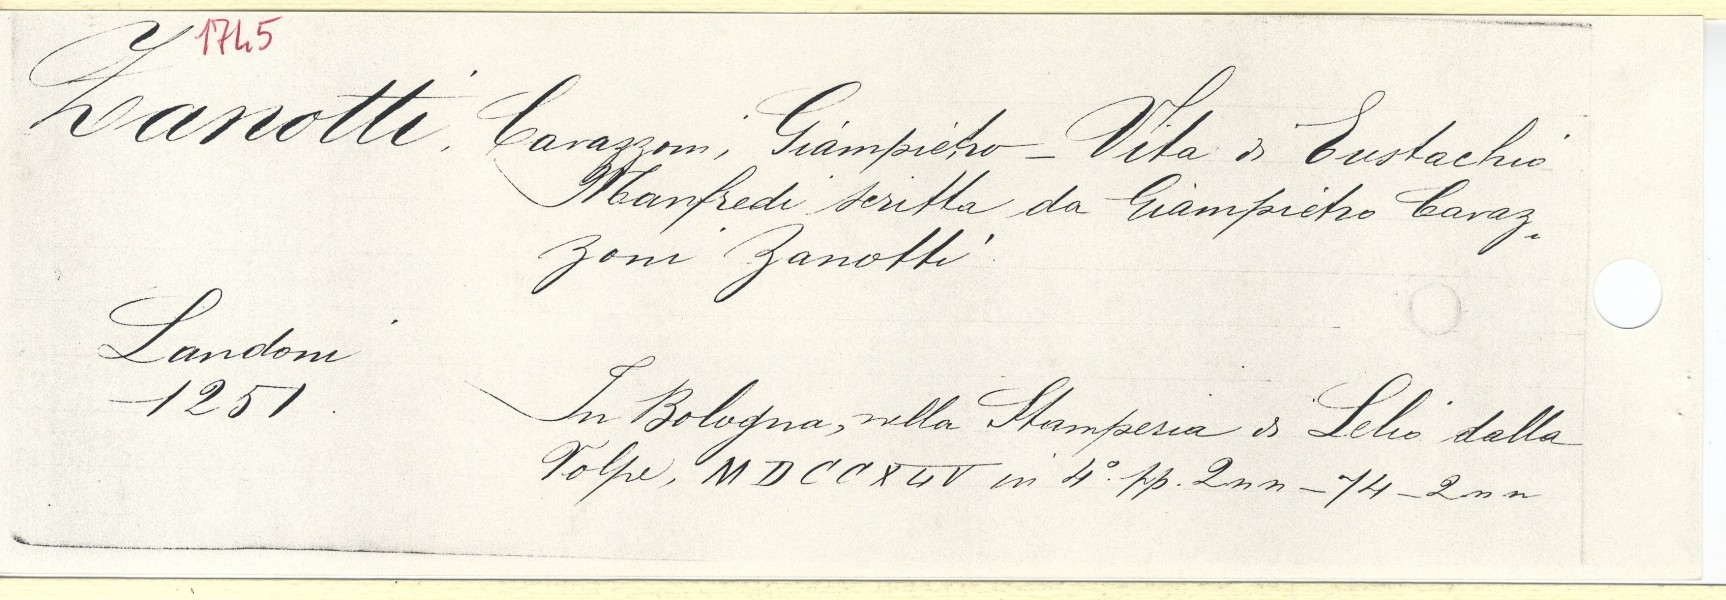 1745
Zanotti, Cavazzoni, Giampietro – Vita di Eustachio
Manfredi scritta da Giampietro Cavaz-
zoni Zanotti
Landoni
1251
In Bologna, nella Stamperia di Lelio dalla
Volpe, MDCCXLV in 4º. pp. 2nn – 74 – 2nn